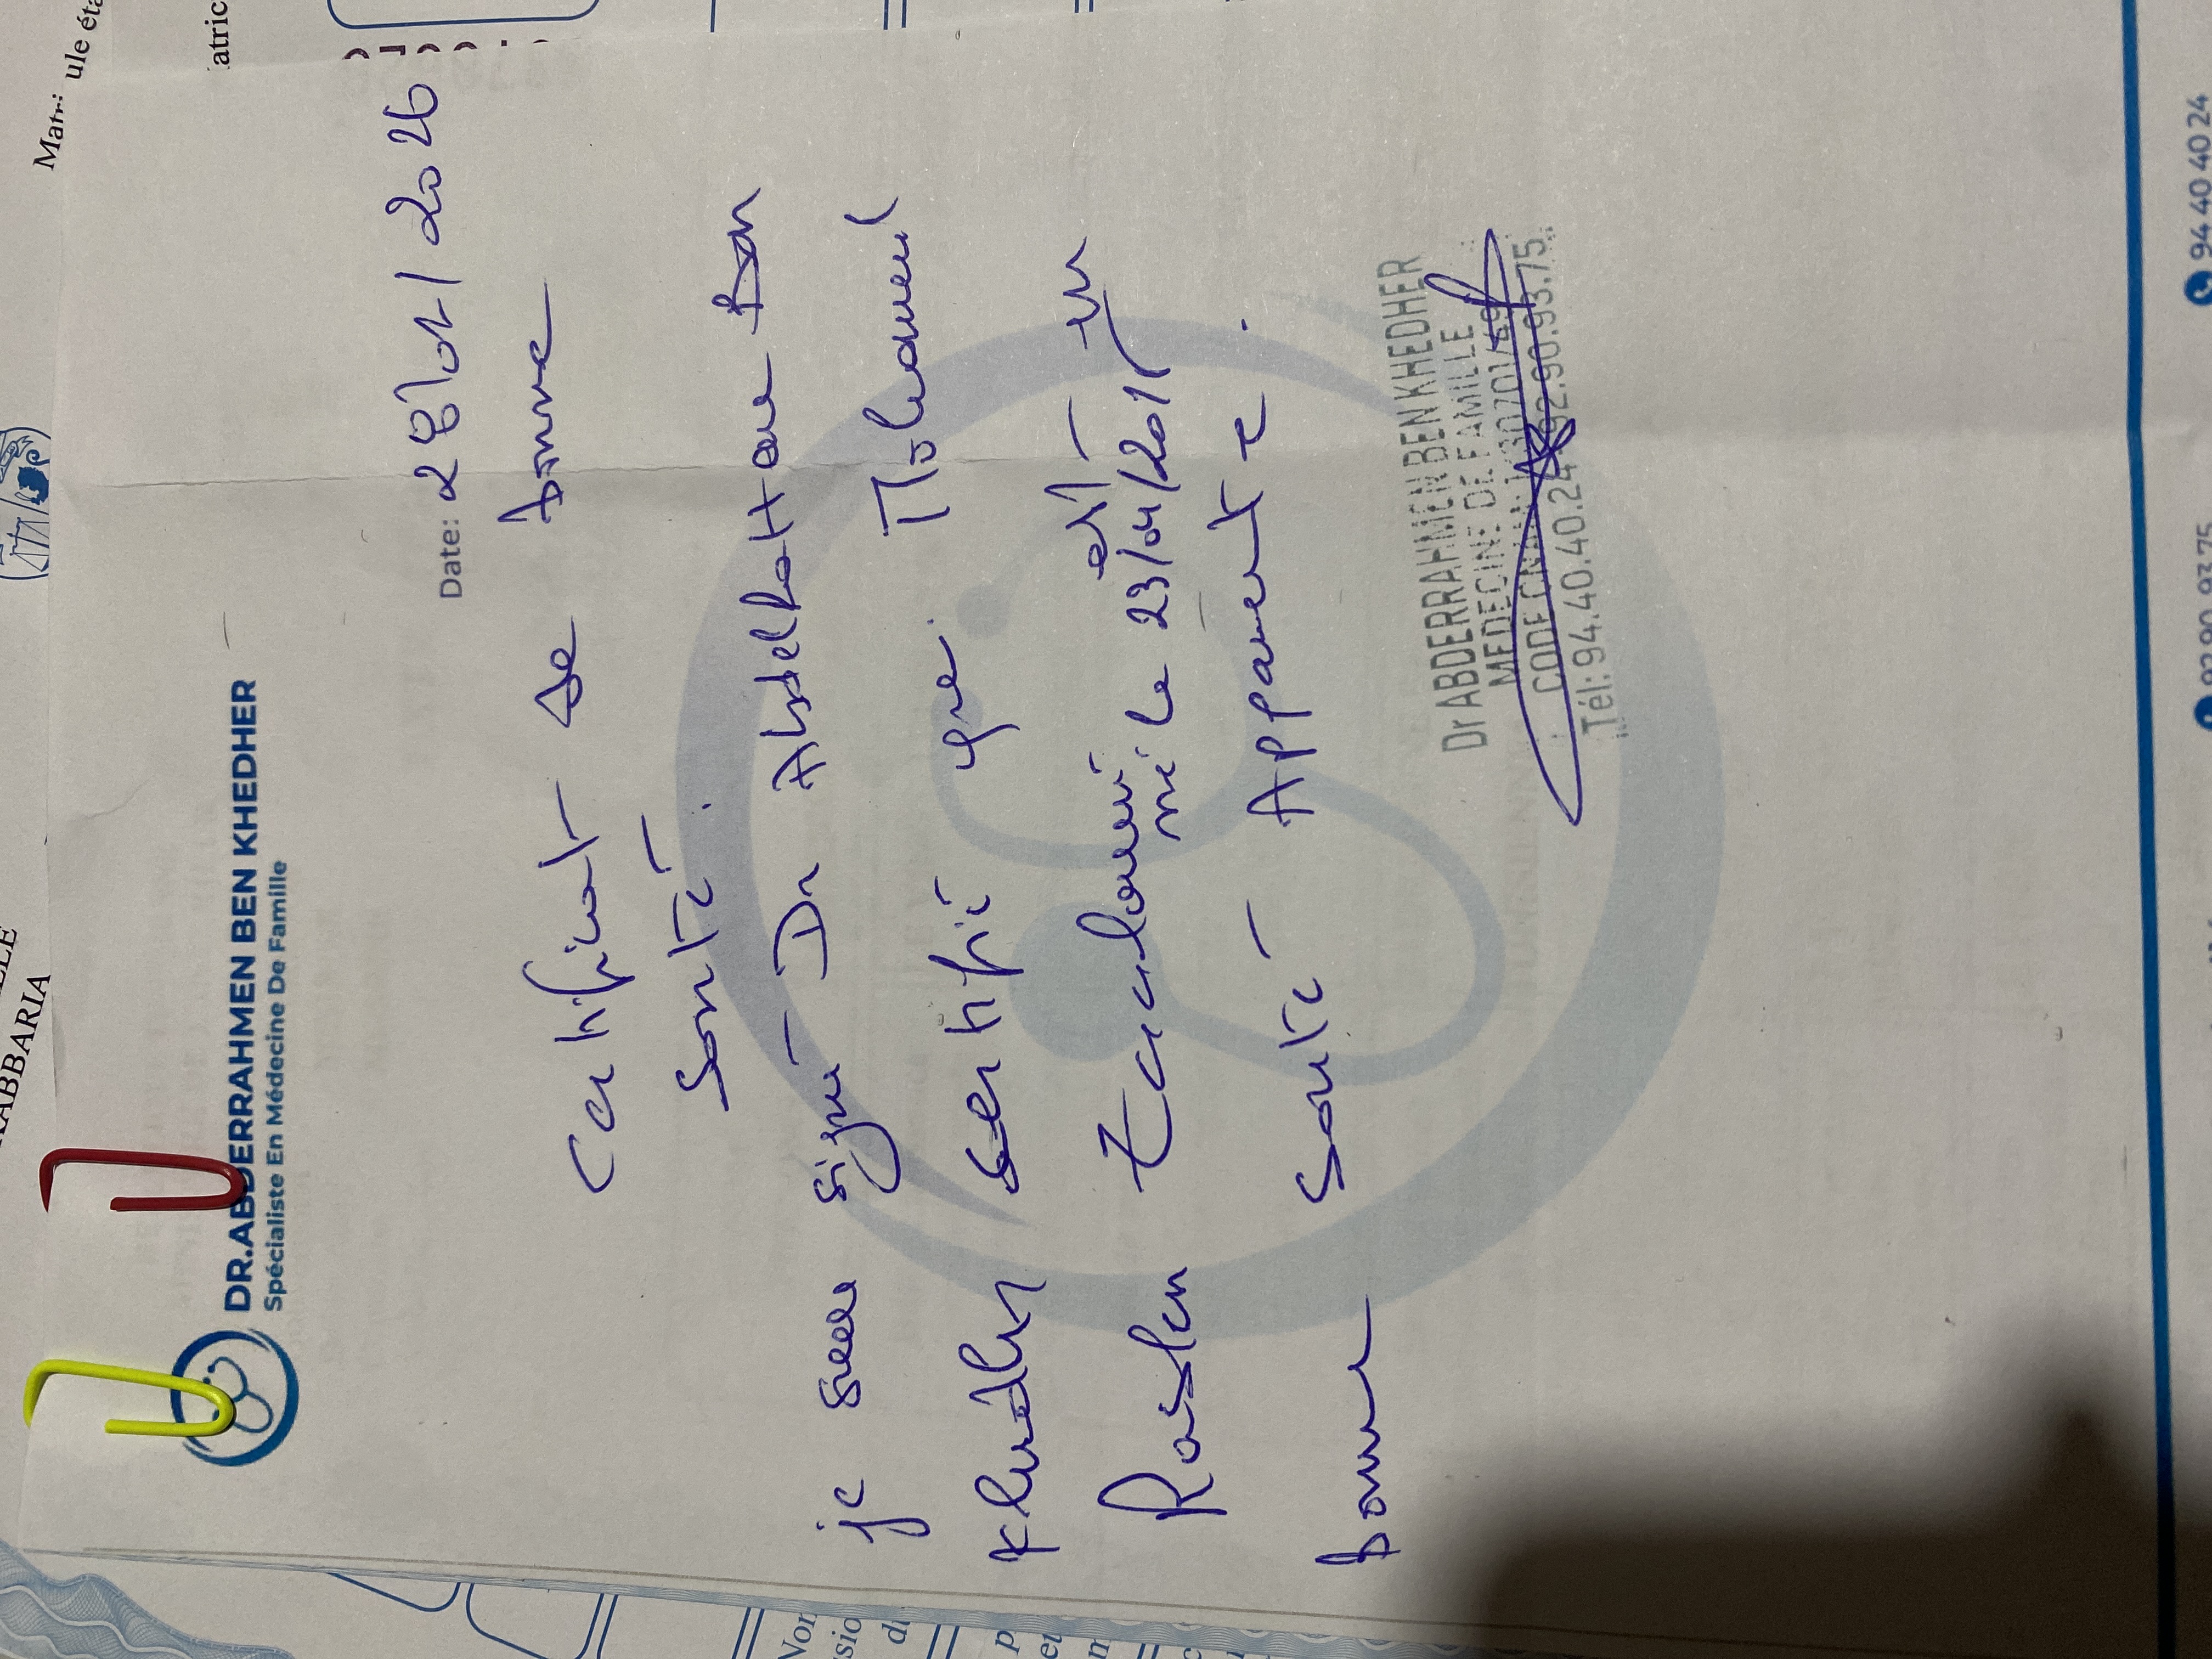 DR.ABDERRAHMEN BEN KHEDHER
Spécialiste En Médecine De Famille
Date: 28/01/2026
Certificat de bonne
Santé.
je sous signé Dr Abdelrahmane Ben
Khedher sertifié que Mohamed
Raslen né le 23/04/2011 est en
bonne santé Apparente.
Dr ABDERRAHMEN BEN KHEDHER
MEDECINE DE FAMILLE
CODE CNAM:
Tél: 94.40.40.24 92.90.93.75
92 90 93 75
94 40 40 24
ABBARIA
Matri
ule éta
atric